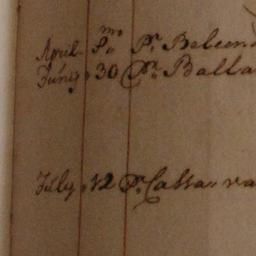 April Pmo Pr. Belcen
June 30 Pr. Balla
July 12 Pr. Cassava